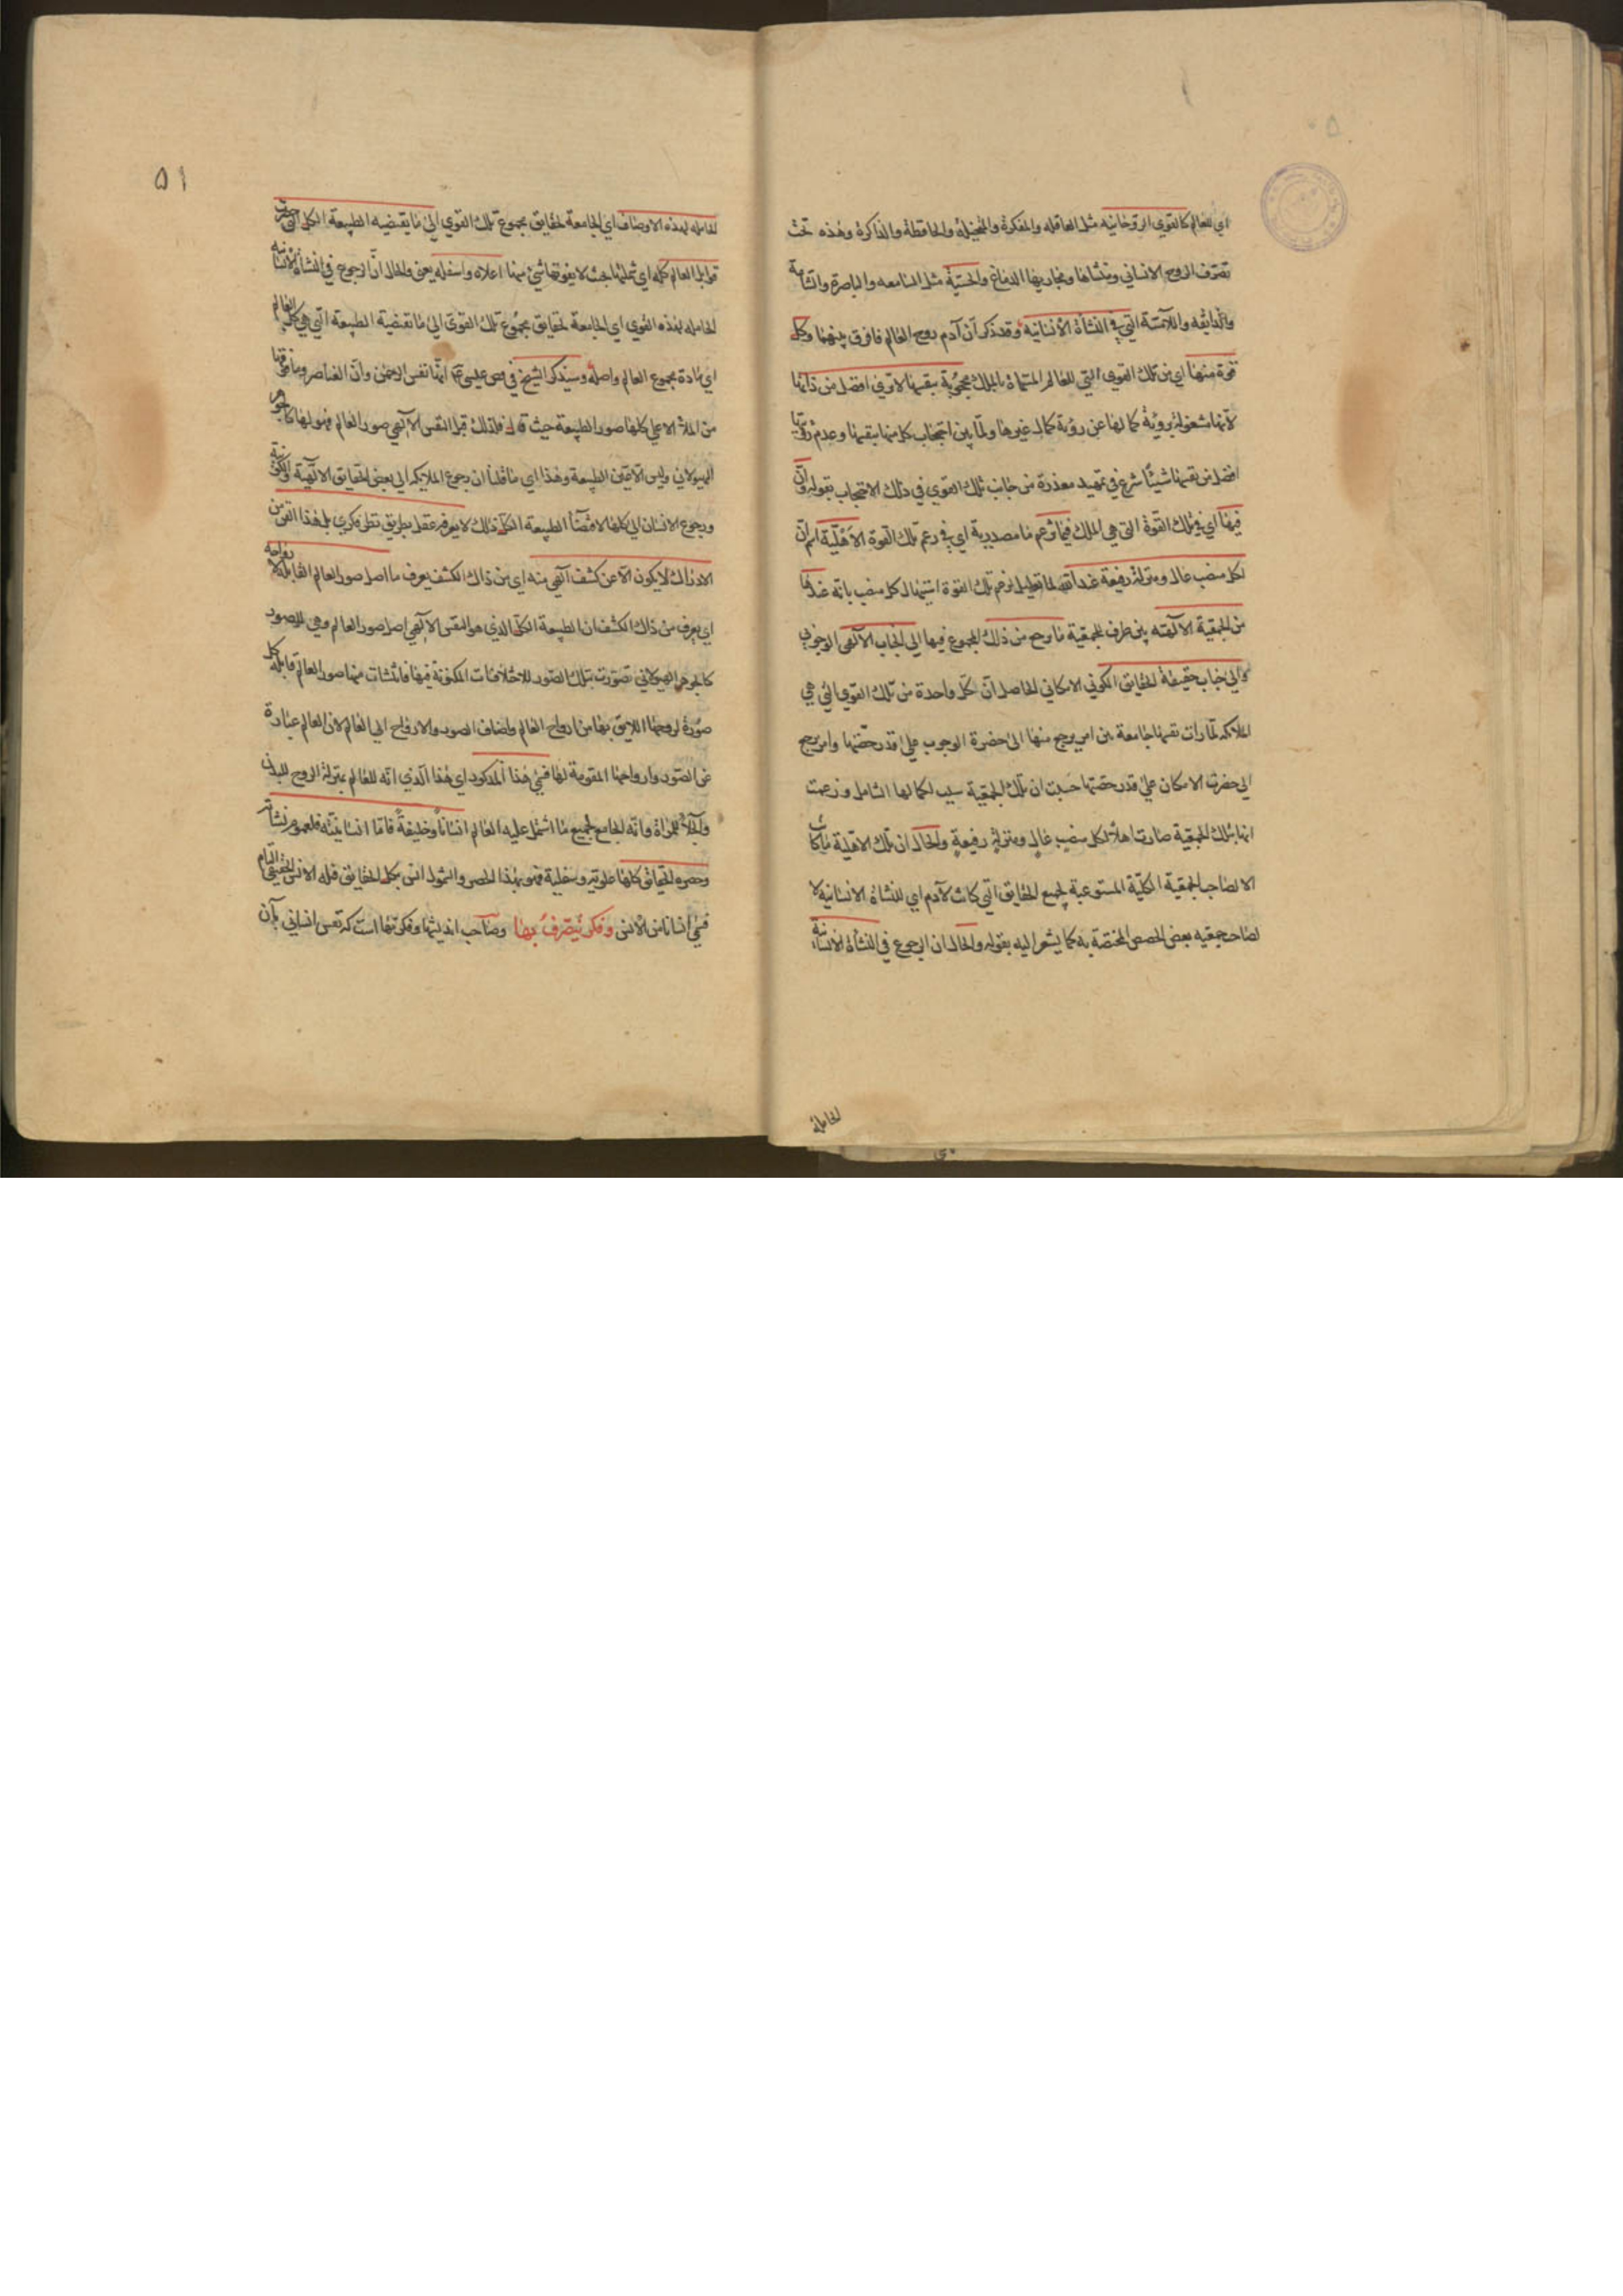 اي للعالم كالقوي الروحانيه مثل العاقله والمفكرة والمتخيلة والحافظة والذاكرة وهذه تحت
تصرف الروح الانساني ومنشاها ومجاريها الدماغ والحسّيّة مثل السامعه والباصرة والشامة
والذايقه واللامسة التي في النشأة الانسانية وقد ذكر آن آدم روح العالم فافرق بينهما وكل
قوة منها اي من تلك القوي التي للعالم المسماة بالملك محجوبة بنفسها لا تري افضل من ذاتها
لانها مشغولة برؤية كمالها عن رؤية كمال غيرها ولمّا بين احتجاب كل منها بنفسها وعدم رؤيتها
افضل من نفسها شيئا شرع في تمهيد معذرة من جانب تلك القوي في ذلك الاحتجاب بقوله وانّ
فيها اي في تلك القوة التي هي الملك فيما تزعم ما مصدرية اي في زعم تلك القوة الاهليّة اسم انّ
لكل منصب عال ومنزلة رفيعة عند الله لما تعليل لزعم تلك القوة استيهال كل منصب بانه عندها
من الجمعية الالهيّه بين طرف للجمعية ما يرجع من ذلك المجموع فيها الي الجناب الالهي الوجوبي
والي جناب حقيقة الحقايق الكوني الامكاني الحاصل آن كل واحدة من تلك القوي التي هي
املاكه لمّا رات نفسها جامعة بين امر يرجع منها الي حضرة الوجوب علي قدر حصّتها وامر يرجع
الي حضرت الامكان علي قدر حصتها حسبت ان تلك الجمعية سبب لكمالها الشامل وزعمت
انها بتلك الجمعية صارت اهلا لكل منصب عال ومنزلة رفيعة والحال ان تلك الاهلية ما كانت
الا لصاحب الجمعية الكلّية المستوعبة لجميع الحقايق التي كانت لآدم اي للنشاة الانسانية لا
لصاحب جمعيه بعض الحصص المختصة به كما يشعر اليه بقوله والحال ان الرجوع في النشأة الانسانية
الحامله
۵۱
الحامله لهذه الاوصاف اي الجامعة لحقايق مجموع تلك القوي الي ما يقتضيه الطبيعة الكل التي حصرت
قوابل العالم كله اي شملتها بحيث لا يفوتها شيئ منها اعلاه واسفله يعني والحال انّ الرجوع في النشأة الانسانية
الحامله لهذه القوي اي الجامعة لحقايق مجموع تلك القوي الي ما تقتضية الطبيعة التي هي كل العالم
اي مادة مجموع العالم واصله وسيذكر الشيخ في فص عيسي انها نفس الرحمن وآن العناصر وما فوقها
من الملأ الاعلي كلها صور الطبيعة حيث قال فلذلك قبل النفس الالهي صور العالم فهو لها كالجوهر
الهيولاني وليس الا عين الطبيعة وهذا اي ما قلنا ان رجوع الملايكه الي بعض الحقايق الالهيّة والكونية
ورجوع الانسان الي كلها لاقتضاء الطبيعة الكل ذلك لا يعرفه عقل بطريق نظر فكري بل هذا الفن من
الادراك لا يكون الا عن كشف الهي منه اي من ذاك الكشف يعرف ما اصل صور العالم القابلة لارواحه
اي يعرف من ذاك الكشف ان الطبيعة الكل الذي هو النفس الالهي اصل صور العالم وهي للصور
كالجوهر الهيولاني تصورت بتلك الصور للاختلافات المكنونة فيها فانتشات منها صور العالم قابلة كل
صورة لروحها اللايق بها من ارواح العالم واضاف الصور والارواح الي العالم لان العالم عبارة
عن الصور وارواحها المقومة لها فسمّي هذا المذكور اي هذا الذي انّه للعالم بمنزلة الروح للبدن
والجلاء للمرآة وانّه الجامع لجميع ما اشتمل عليه العالم انسانا وخليفة فاما انسانيته فلعموم نشأته
وحصره الحقايق كلها علوية وسفلية فهو بهذا الحصر والشمول انس بكل الحقايق فله الانس الحقيقي التام
فسمّي انسانا من الانس وفكر يتصرف بها وصاحب انديشها وفكرتها است كه نفس انساني بآن